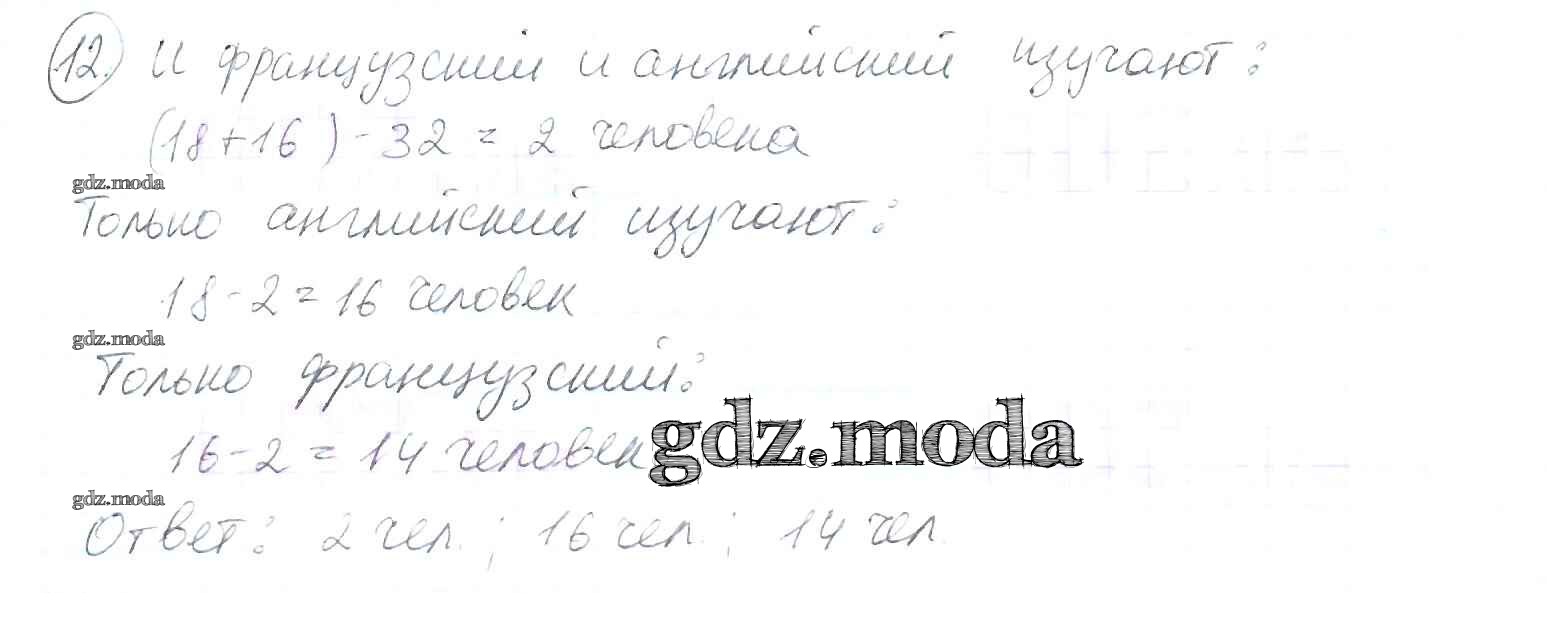 12. И французский и английский изучают:
(18+16) - 32 = 2 человека
gdz.moda
Только английский изучают:
18 - 2 = 16 человек
gdz.moda
Только французский:
16 - 2 = 14 человек
gdz.moda
gdz.moda
Ответ: 2 чел.; 16 чел.; 14 чел.